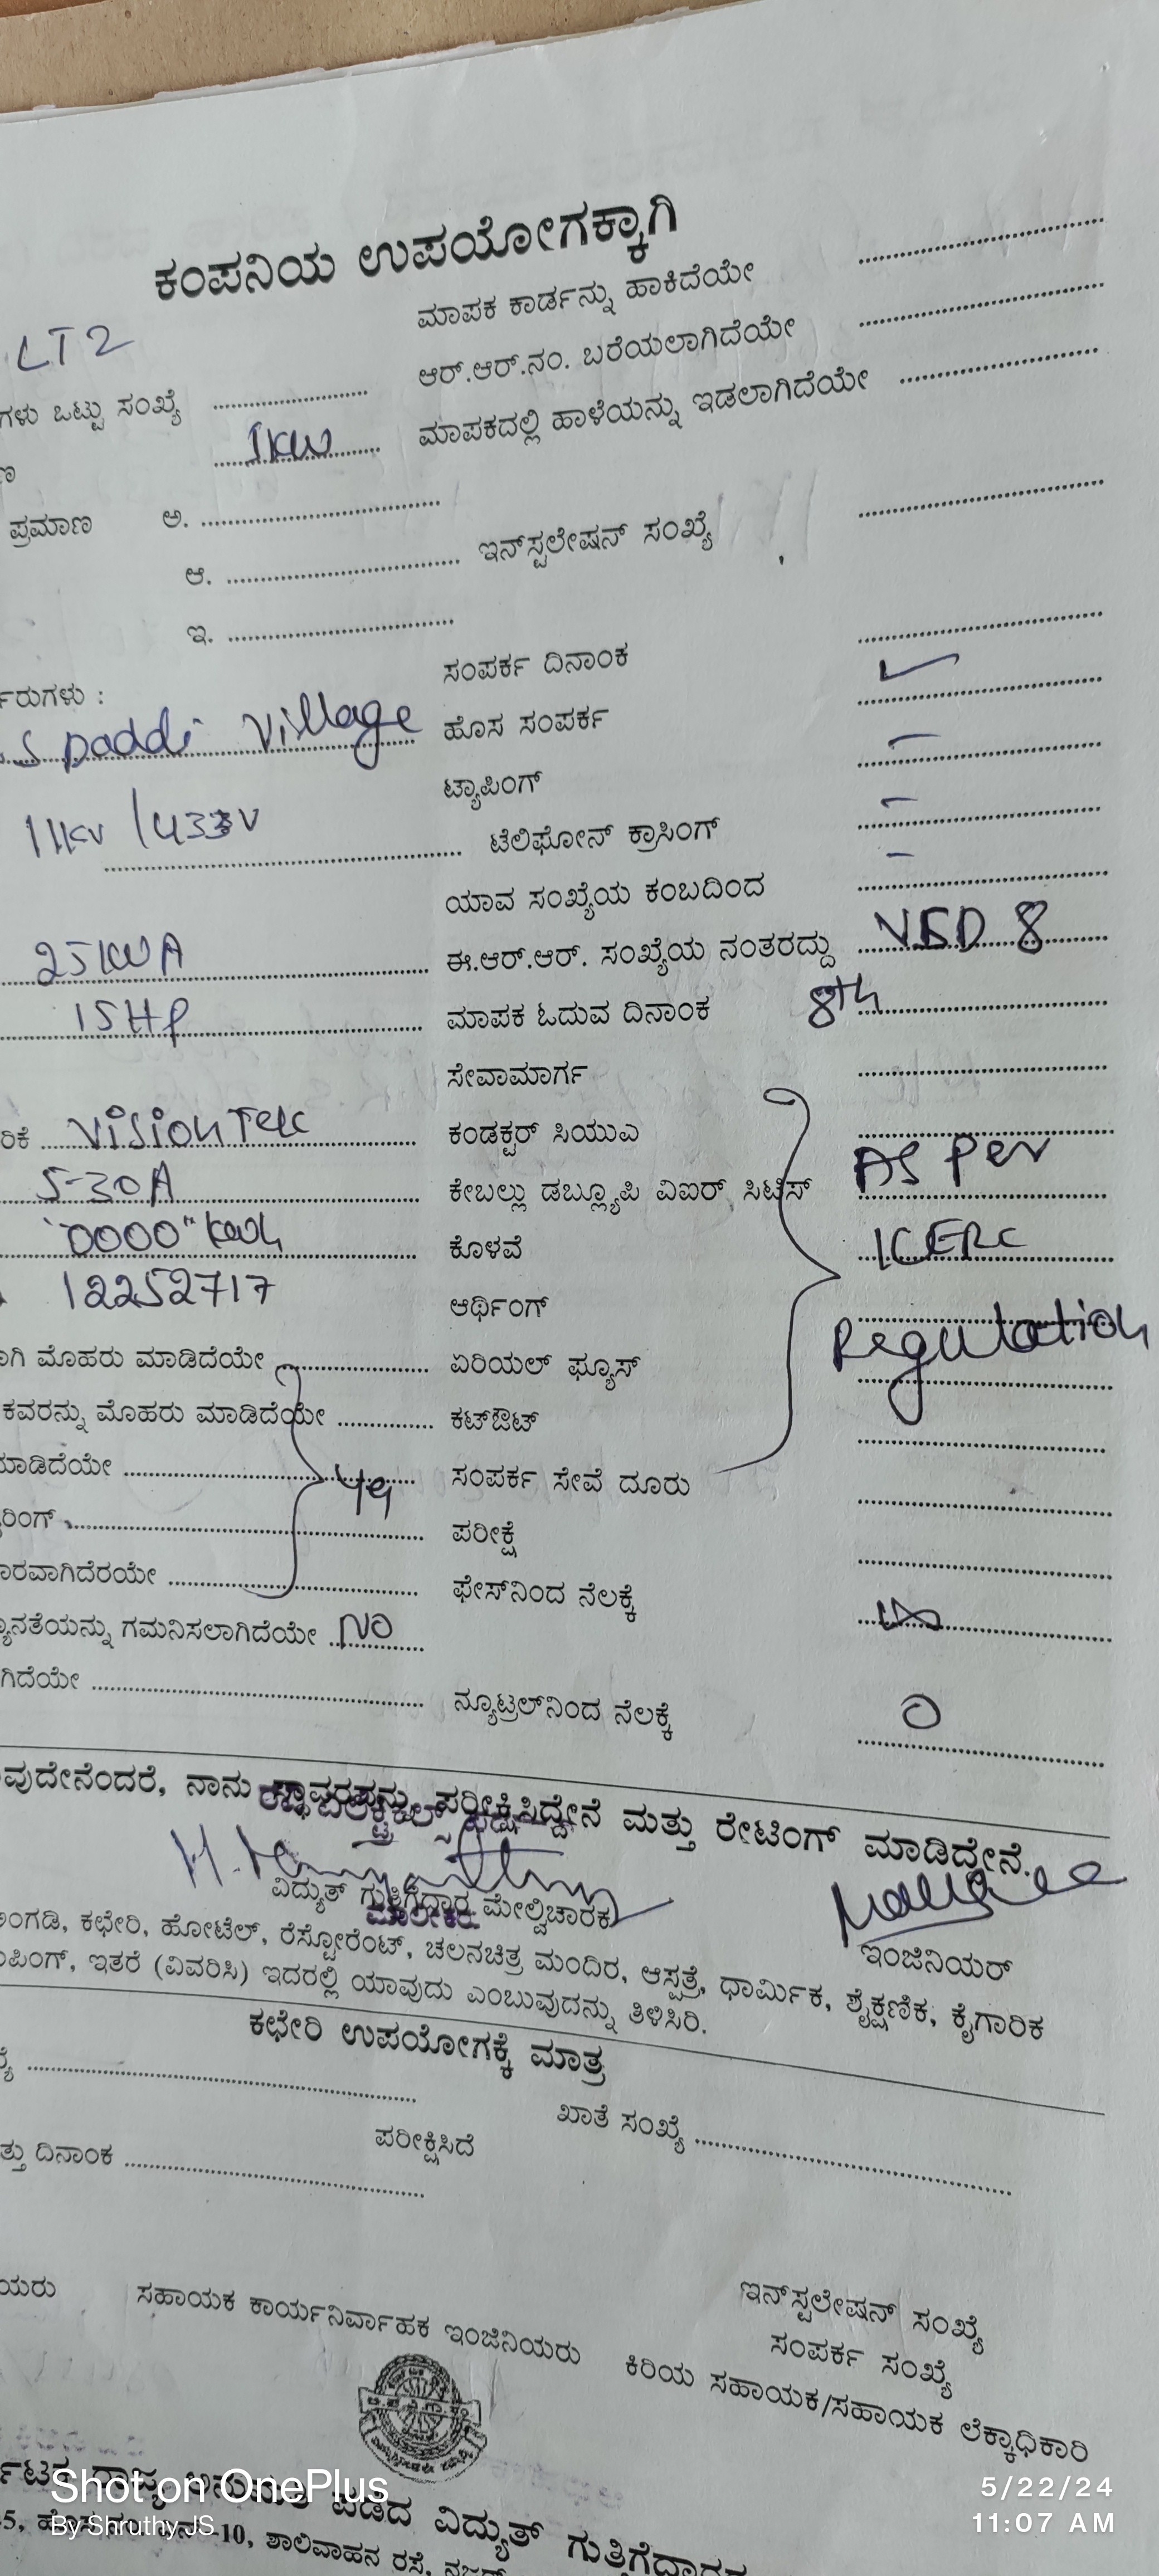 ಕಂಪನಿಯ ಉಪಯೋಗಕ್ಕಾಗಿ
LT2
ಮಾಪಕ ಕಾರ್ಡನ್ನು ಹಾಕಿದೆಯೇ
ಗಳು ಒಟ್ಟು ಸಂಖ್ಯೆ ಆರ್.ಆರ್.ನಂ. ಬರೆಯಲಾಗಿದೆಯೇ
1KW ಮಾಪಕದಲ್ಲಿ ಹಾಳೆಯನ್ನು ಇಡಲಾಗಿದೆಯೇ
ಪ್ರಮಾಣ ಅ.
ಆ. ಇನ್‌ಸ್ಟಲೇಷನ್ ಸಂಖ್ಯೆ
ಇ.
ಸಂಪರ್ಕ ದಿನಾಂಕ
ರುಗಳು :
Spaddi Village ಹೊಸ ಸಂಪರ್ಕ
ಟ್ಯಾಪಿಂಗ್
11KV /433V ಟೆಲಿಫೋನ್ ಕ್ರಾಸಿಂಗ್
ಯಾವ ಸಂಖ್ಯೆಯ ಕಂಬದಿಂದ
25KVA ಈ.ಆರ್.ಆರ್. ಸಂಖ್ಯೆಯ ನಂತರದ್ದು 8
15HP ಮಾಪಕ ಓದುವ ದಿನಾಂಕ 8th
ಸೇವಾಮಾರ್ಗ
ರಿಕೆ Vision Tek ಕಂಡಕ್ಟರ್ ಸಿಯುಎ
5-30A ಕೇಬಲ್ಲು ಡಬ್ಲ್ಯೂಪಿ ವಿಐರ್ ಸಿಟಿಸ್ As Per
"0000" kwh ಕೊಳವೆ KERC
12252717 ಆರ್ಥಿಂಗ್ Regulation
ಾಗಿ ಮೊಹರು ಮಾಡಿದೆಯೇ ಏರಿಯಲ್ ಫ್ಯೂಸ್
ಕವರನ್ನು ಮೊಹರು ಮಾಡಿದೆಯೇ ಕಟ್‌ಔಟ್
ಮಾಡಿದೆಯೇ ಸಂಪರ್ಕ ಸೇವೆ ದೂರು
ರಿಂಗ್ ಪರೀಕ್ಷೆ
ಾರವಾಗಿದೆರಯೇ ಫೇಸ್‌ನಿಂದ ನೆಲಕ್ಕೆ ∞
ನ್ಯೂನತೆಯನ್ನು ಗಮನಿಸಲಾಗಿದೆಯೇ NO
ಗಿದೆಯೇ ನ್ಯೂಟ್ರಲ್‌ನಿಂದ ನೆಲಕ್ಕೆ 0
ವುದೇನೆಂದರೆ, ನಾನು ಸ್ಥಾವರವನ್ನು ಪರೀಕ್ಷಿಸಿದ್ದೇನೆ ಮತ್ತು ರೇಟಿಂಗ್ ಮಾಡಿದ್ದೇನೆ.
ವಿದ್ಯುತ್ ಗುತ್ತಿಗೆದ್ದಾರ ಮೇಲ್ವಿಚಾರಕ
ಮಾಲೀಕರು
ಇಂಜಿನಿಯರ್
ಅಂಗಡಿ, ಕಛೇರಿ, ಹೋಟೆಲ್, ರೆಸ್ಟೋರೆಂಟ್, ಚಲನಚಿತ್ರ ಮಂದಿರ, ಆಸ್ಪತ್ರೆ, ಧಾರ್ಮಿಕ, ಶೈಕ್ಷಣಿಕ, ಕೈಗಾರಿಕ
ಪಿಂಗ್, ಇತರೆ (ವಿವರಿಸಿ) ಇದರಲ್ಲಿ ಯಾವುದು ಎಂಬುವುದನ್ನು ತಿಳಿಸಿರಿ.
ಕಛೇರಿ ಉಪಯೋಗಕ್ಕೆ ಮಾತ್ರ
ಖಾತೆ ಸಂಖ್ಯೆ
ತ್ತು ದಿನಾಂಕ ಪರೀಕ್ಷಿಸಿದೆ
ಯರು ಸಹಾಯಕ ಕಾರ್ಯನಿರ್ವಾಹಕ ಇಂಜಿನಿಯರು
ಇನ್‌ಸ್ಟಲೇಷನ್ ಸಂಖ್ಯೆ
ಸಂಪರ್ಕ ಸಂಖ್ಯೆ
ಕಿರಿಯ ಸಹಾಯಕ/ಸಹಾಯಕ ಲೆಕ್ಕಾಧಿಕಾರಿ
ರ್ನಾಟಕ ರಾಜ್ಯ ಅನುಮತಿ ಪಡೆದ ವಿದ್ಯುತ್ ಗುತ್ತಿಗೆದಾರರ
-10, ಶಾಲಿವಾಹನ ರಸ್ತೆ,
Shot on OnePlus
By Shruthy JS
5/22/24
11:07 AM